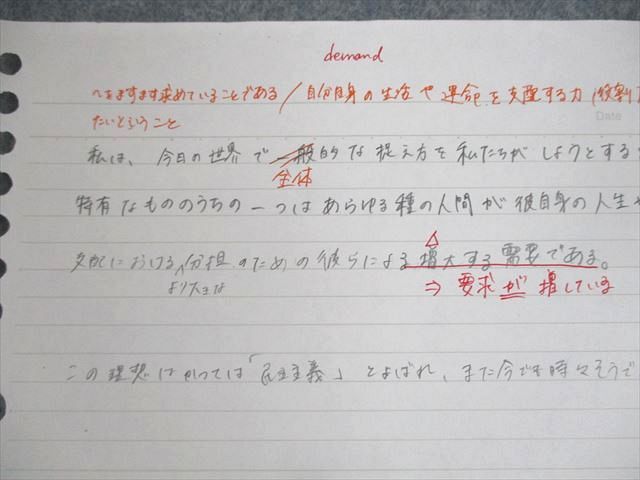 demand
〜をますます求めていることである/自分自身の生活や運命を支配する力(役割)
Date
たいということ
私は、今日の世界で一般的な捉え方を私たちがしようとする
全体
特有なもののうちの一つはあらゆる種の人間が彼自身の人生
支配における分担のための彼らによる増大する需要である。
より大きな
⇒ 要求が増している
この理想はかつては「民主主義」とよばれ、また今でも時々そうで